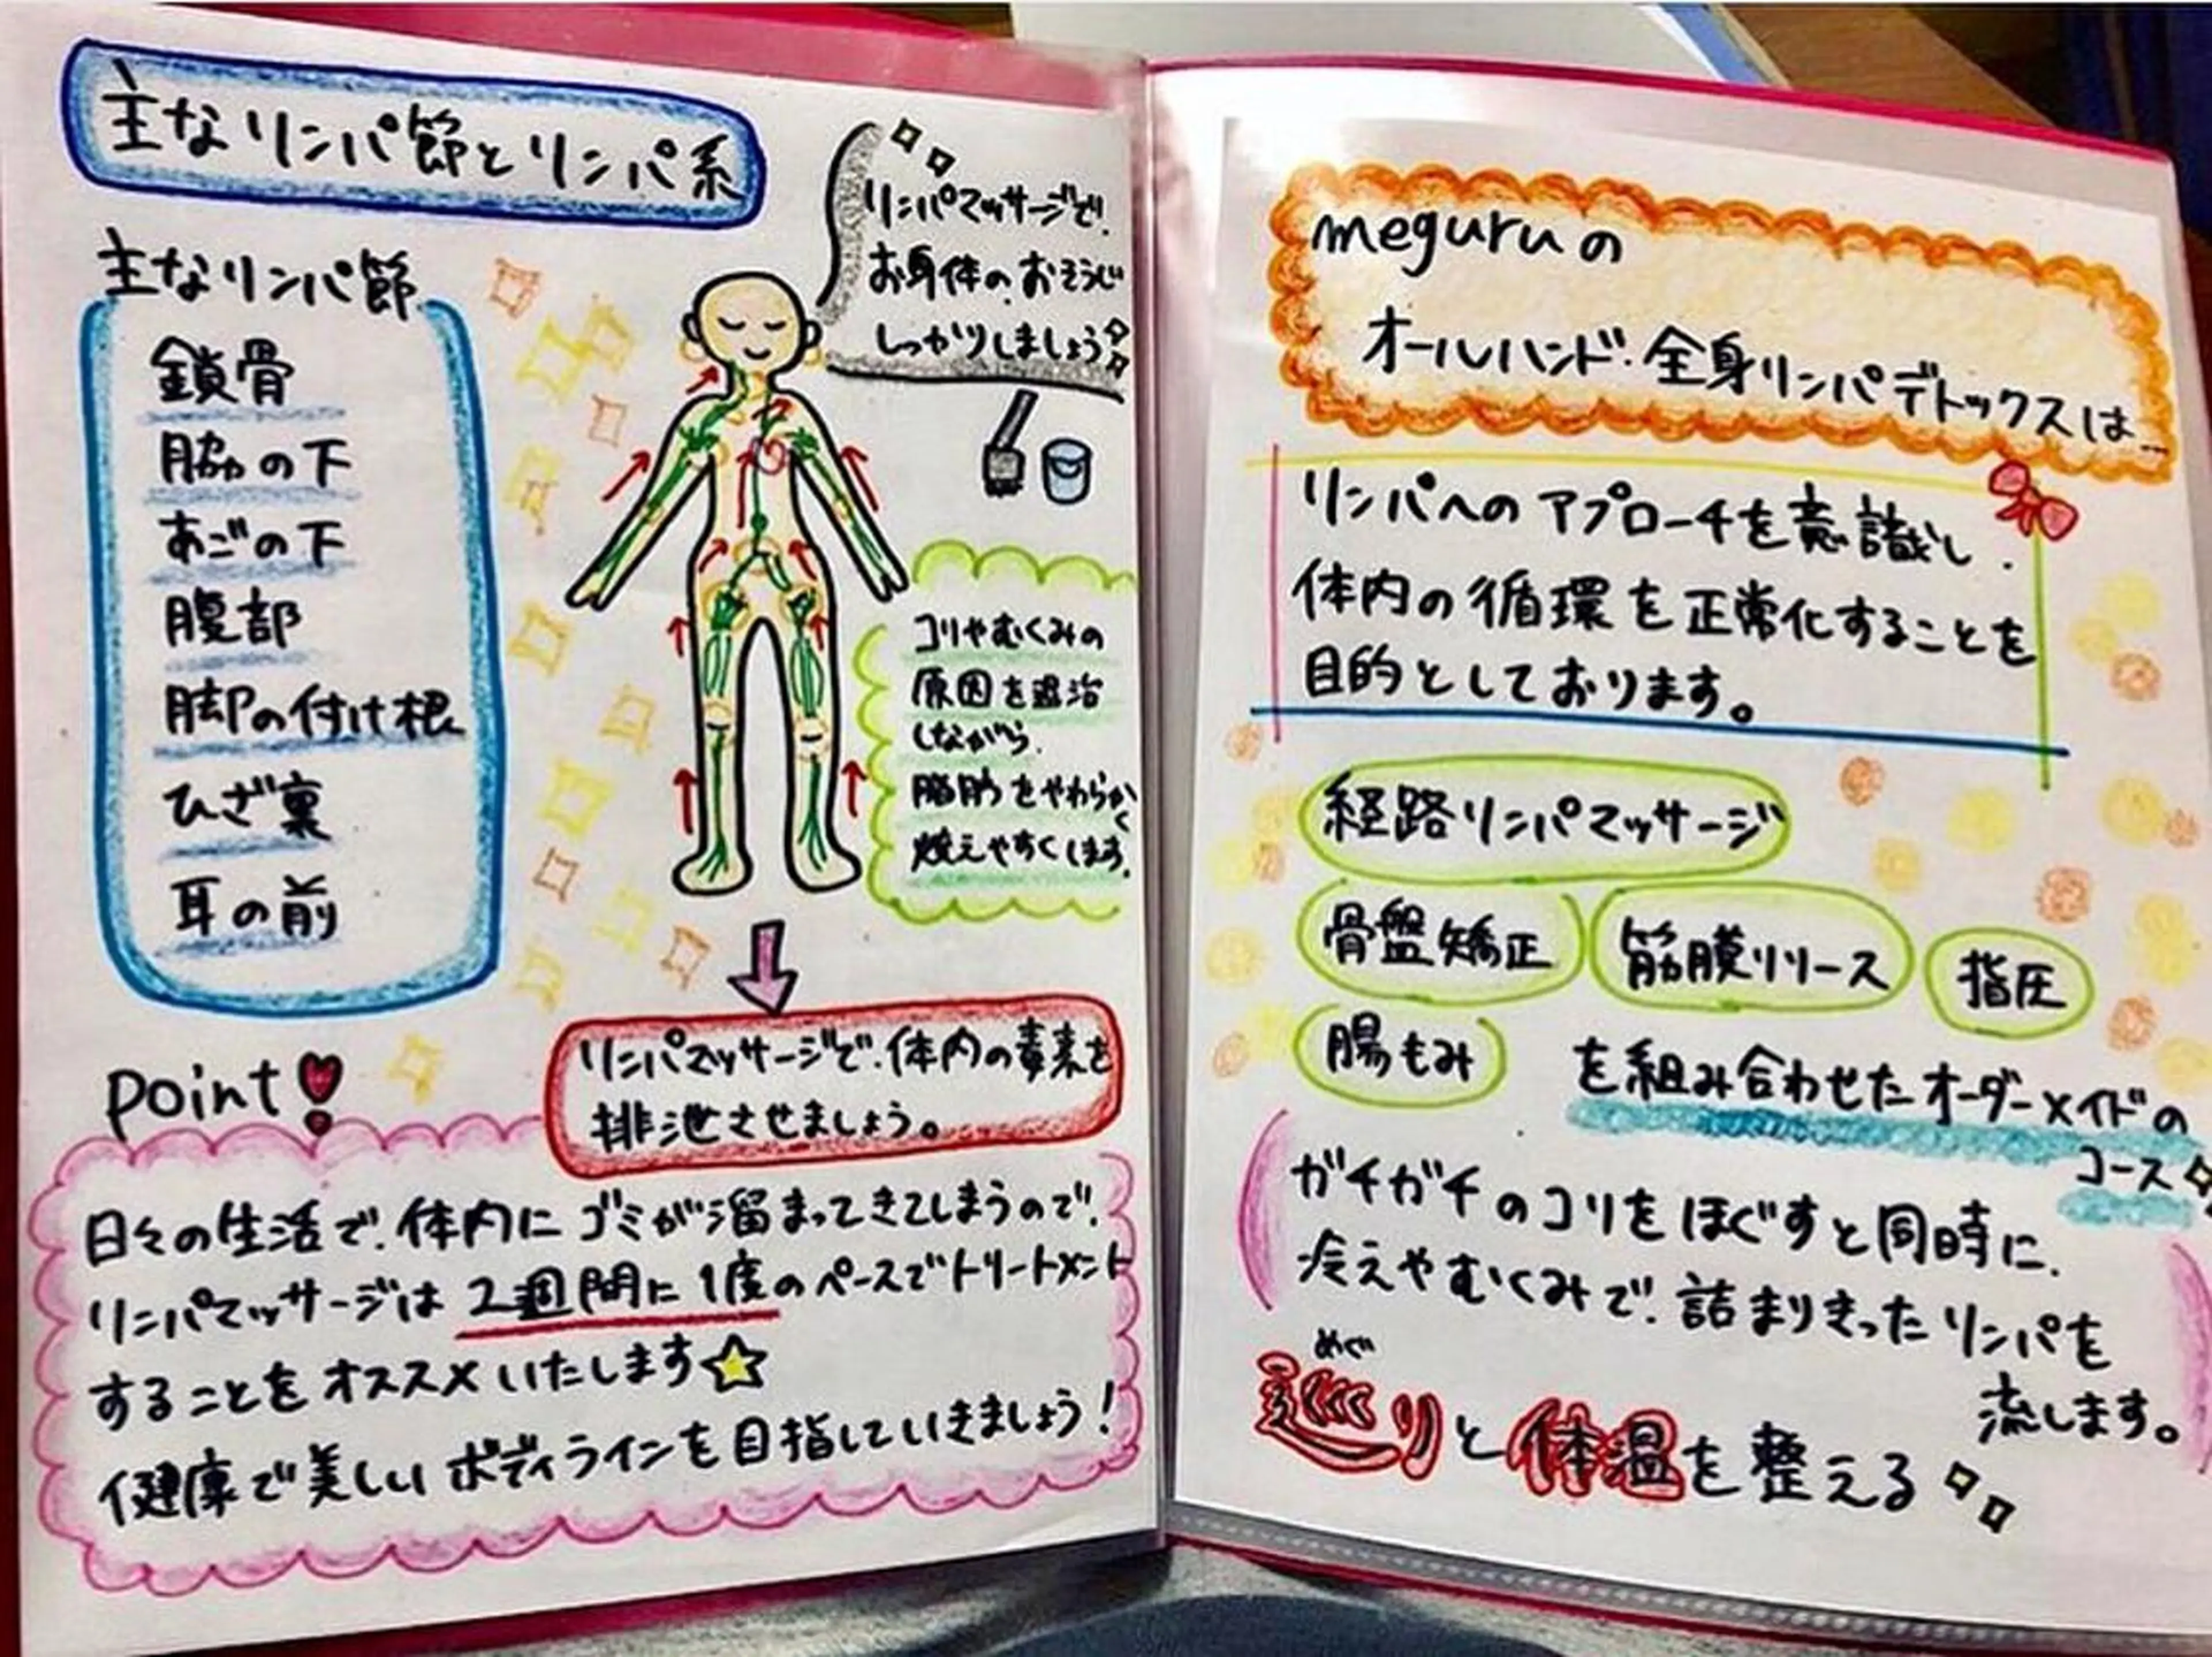 主なリンパ節とリンパ系
主なリンパ節
鎖骨
脇の下
あごの下
腹部
脚の付け根
ひざ裏
耳の前
リンパマッサージで、
お身体の、おそうじ
しっかりしましょう
コリやむくみの
原因を退治
しながら、
脂肪をやわらかく
燃えやすくします。
リンパマッサージで、体内の毒素を
排泄させましょう。
point!
日々の生活で、体内にゴミが溜まってきてしまうので、
リンパマッサージは2週間に1度のペースでトリートメント
することをオススメいたします☆
健康で美しいボディラインを目指していきましょう!
meguruの
オールハンド・全身リンパデトックスは…
リンパへのアプローチを意識し、
体内の循環を正常化することを
目的としております。
経路リンパマッサージ
骨盤矯正 筋膜リリース 指圧
腸もみ を組み合わせたオーダーメイドの
コース
ガチガチのコリをほぐすと同時に、
冷えやむくみで、詰まりきったリンパを
流します。
めぐ
巡りと体温を整える